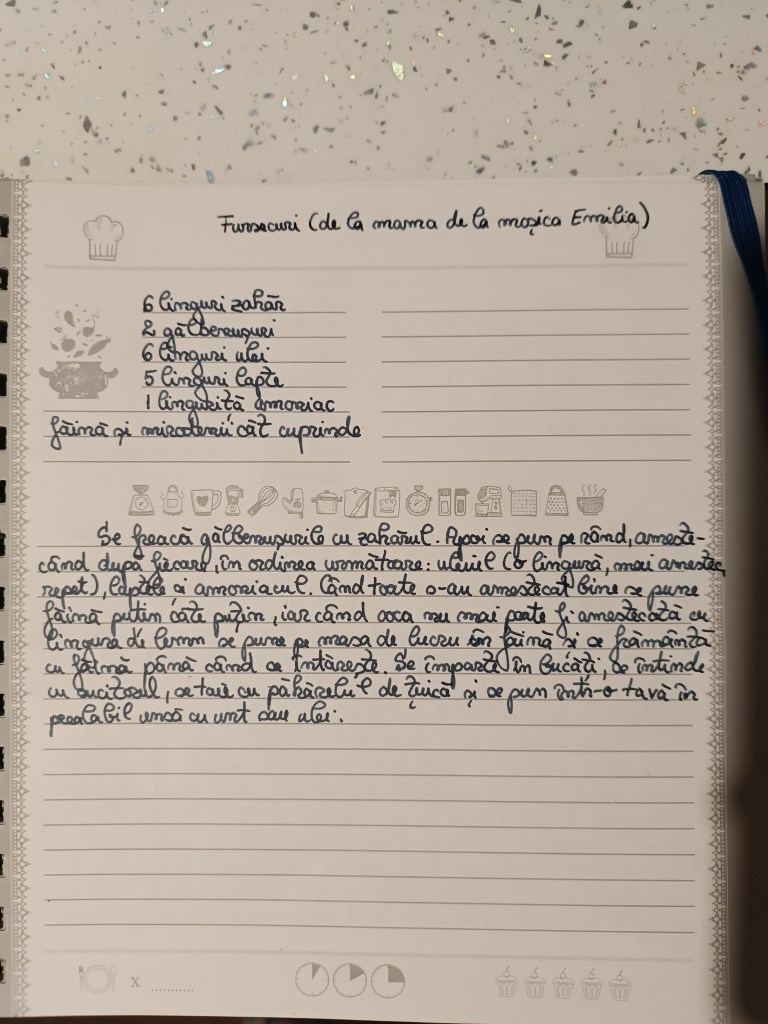 Fursecuri (de la mama de la moșica Emilia)
6 linguri zahăr
2 gălbenușuri
6 linguri ulei
5 linguri lapte
1 linguriță amoniac
făină și mirodenii cât cuprinde
Se freacă gălbenușurile cu zahărul. Apoi se pun pe rând, ameste-
când după fiecare, în ordinea următoare: uleiul (o lingură, mai amestec,
repet), laptele și amoniacul. Când toate s-au amestecat bine se pune
făină puțin câte puțin, iar când coca nu mai poate fi amestecată cu
lingura de lemn se pune pe masa de lucru în făină și se frământă
cu făină până când se întărește. Se împarte în bucăți, se întinde
cu sucitorul, se taie cu păhărelul de țuică și se pun într-o tavă în
prealabil unsă cu unt sau ulei.
x ..........